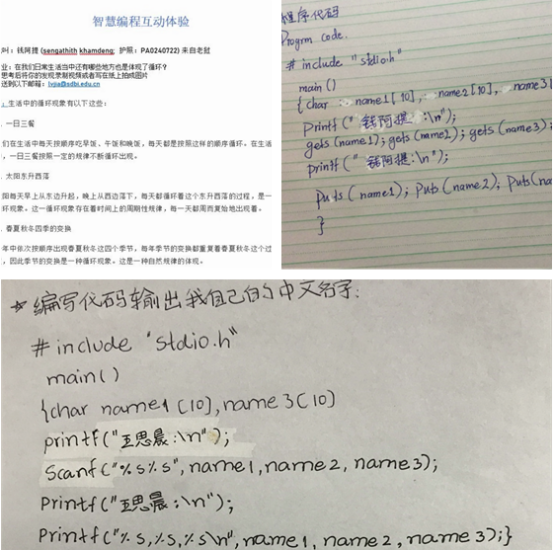 智慧编程互动体验
叫：钱阿提 (sengathith khamdeng; 护照：PA0240722) 来自老挝
业：在我们日常生活当中还有哪些地方也是体现了循环？
思考后将你的发现录制视频或者写在纸上拍成图片
送到以下邮箱：lvjia@sdbi.edu.cn
生活中的循环现象有以下这些：
一日三餐
们在生活中每天按顺序吃早饭、午饭和晚饭，每天都是按照这样的顺序循环，在生活
，一日三餐按照一定的规律不断循环出现。
太阳东升西落
阳每天早上从东边升起，晚上从西边落下，每天都循环着这个东升西落的过程，是一
环现象。这一循环现象存在着时间上的周期性规律，每一天都周而复始地出现着。
春夏秋冬四季的变换
年中依次按顺序出现春夏秋冬这四个季节，每年季节的变换都重复着春夏秋冬这个过
，因此季节的变换是一种循环现象。这是一种自然规律的体现。
程序代码
Progrm code.
# include "stdio.h"
main ()
{char name1[10], name2[10], name3
Printf (" 钱阿提 :\n");
gets (name1); gets (name2); gets (name3);
printf (" 钱阿提:\n");
Puts (name1); Puts (name2); Puts(na
}
★编写代码输出我自己的中文名字:
# include "stdio.h"
main()
{char name1 [10], name3[10]
printf("王思晨:\n");
Scanf("%s%s", name1, name2, name3);
Printf("王思晨:\n");
Printf("%s,%s,%s\n", name1, name2, name3);}